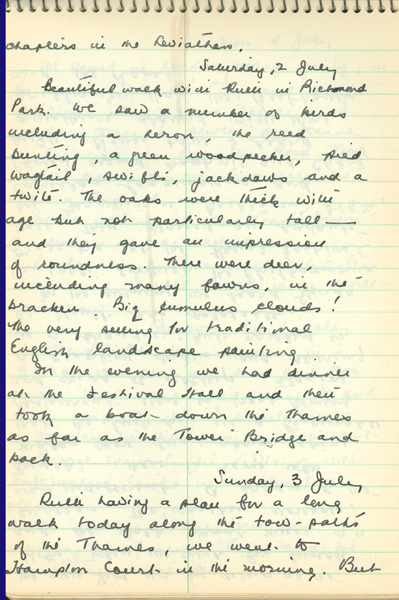 chapters in the Leviathan.
Saturday, 2 July
Beautiful walk with Ruth in Richmond
Park. We saw a number of birds
including a heron, the reed
bunting, a green woodpecker, pied
wagtail, swifts, jackdaws and a
twite. The oaks were thick with
age but not particularly tall —
and they gave an impression
of roundness. There were deer,
including many fawns, in the
bracken. Big cumulus clouds!
The very setting for traditional
English landscape painting.
In the evening we had dinner
at the Festival Hall and then
took a boat down the Thames
as far as the Tower Bridge and
back.
Sunday, 3 July
Ruth having a plan for a long
walk today along the tow-paths
of the Thames, we went to
Hampton Court in the morning. But